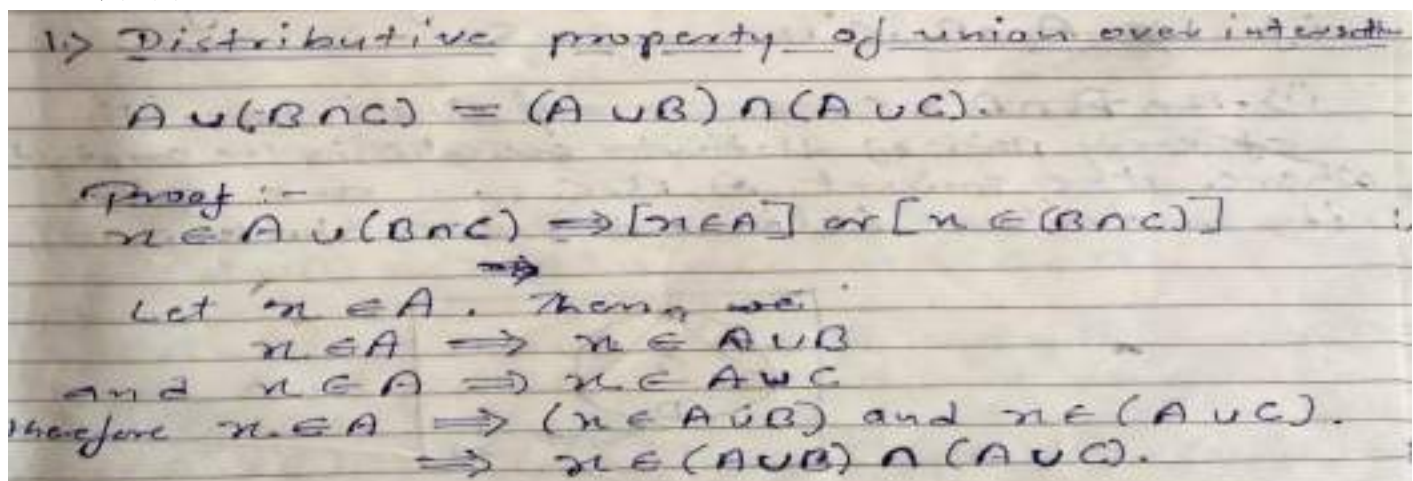 1.> Distributive property of union over intersectn
A ∪ (B ∩ C) = (A ∪ B) ∩ (A ∪ C).
Proof :-
x ∈ A ∪ (B ∩ C) ⇒ [x ∈ A] or [x ∈ (B ∩ C)]
⇒
Let x ∈ A. Then, we
x ∈ A ⇒ x ∈ A ∪ B
and x ∈ A ⇒ x ∈ A ∪ C
Therefore x ∈ A ⇒ (x ∈ A ∪ B) and x ∈ (A ∪ C).
⇒ x ∈ (A ∪ B) ∩ (A ∪ C).